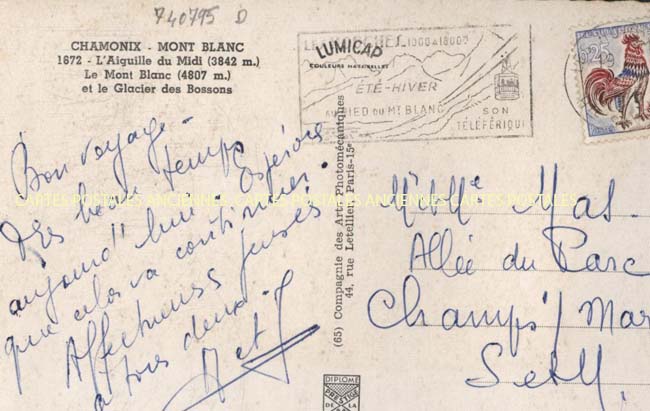 740795 D
CHAMONIX - MONT BLANC
1672 - L'Aiguille du Midi (3842 m.)
Le Mont Blanc (4807 m.)
et le Glacier des Bossons
LUMICAP
COULEURS NATURELLES
ÉTÉ-HIVER
AU PIED DU MT BLANC
SON
TÉLÉFÉRIQU
0,25
Bon voyage -
très beau temps
aujourd'hui Espérons
que cela va continuer.
Affectueuses pensées
à tous deux.
CARTES POSTALES ANCIENNES CARTES POSTALES ANCIENNES CARTES POSTALES
(65) Compagnie des Arts Photomécaniques
44, rue Letellier, Paris-15e
DIPLOME
PRESTIGE
DE LA
Mr et Me Mas.
Allée du Parc
Champs/Mar
S et M